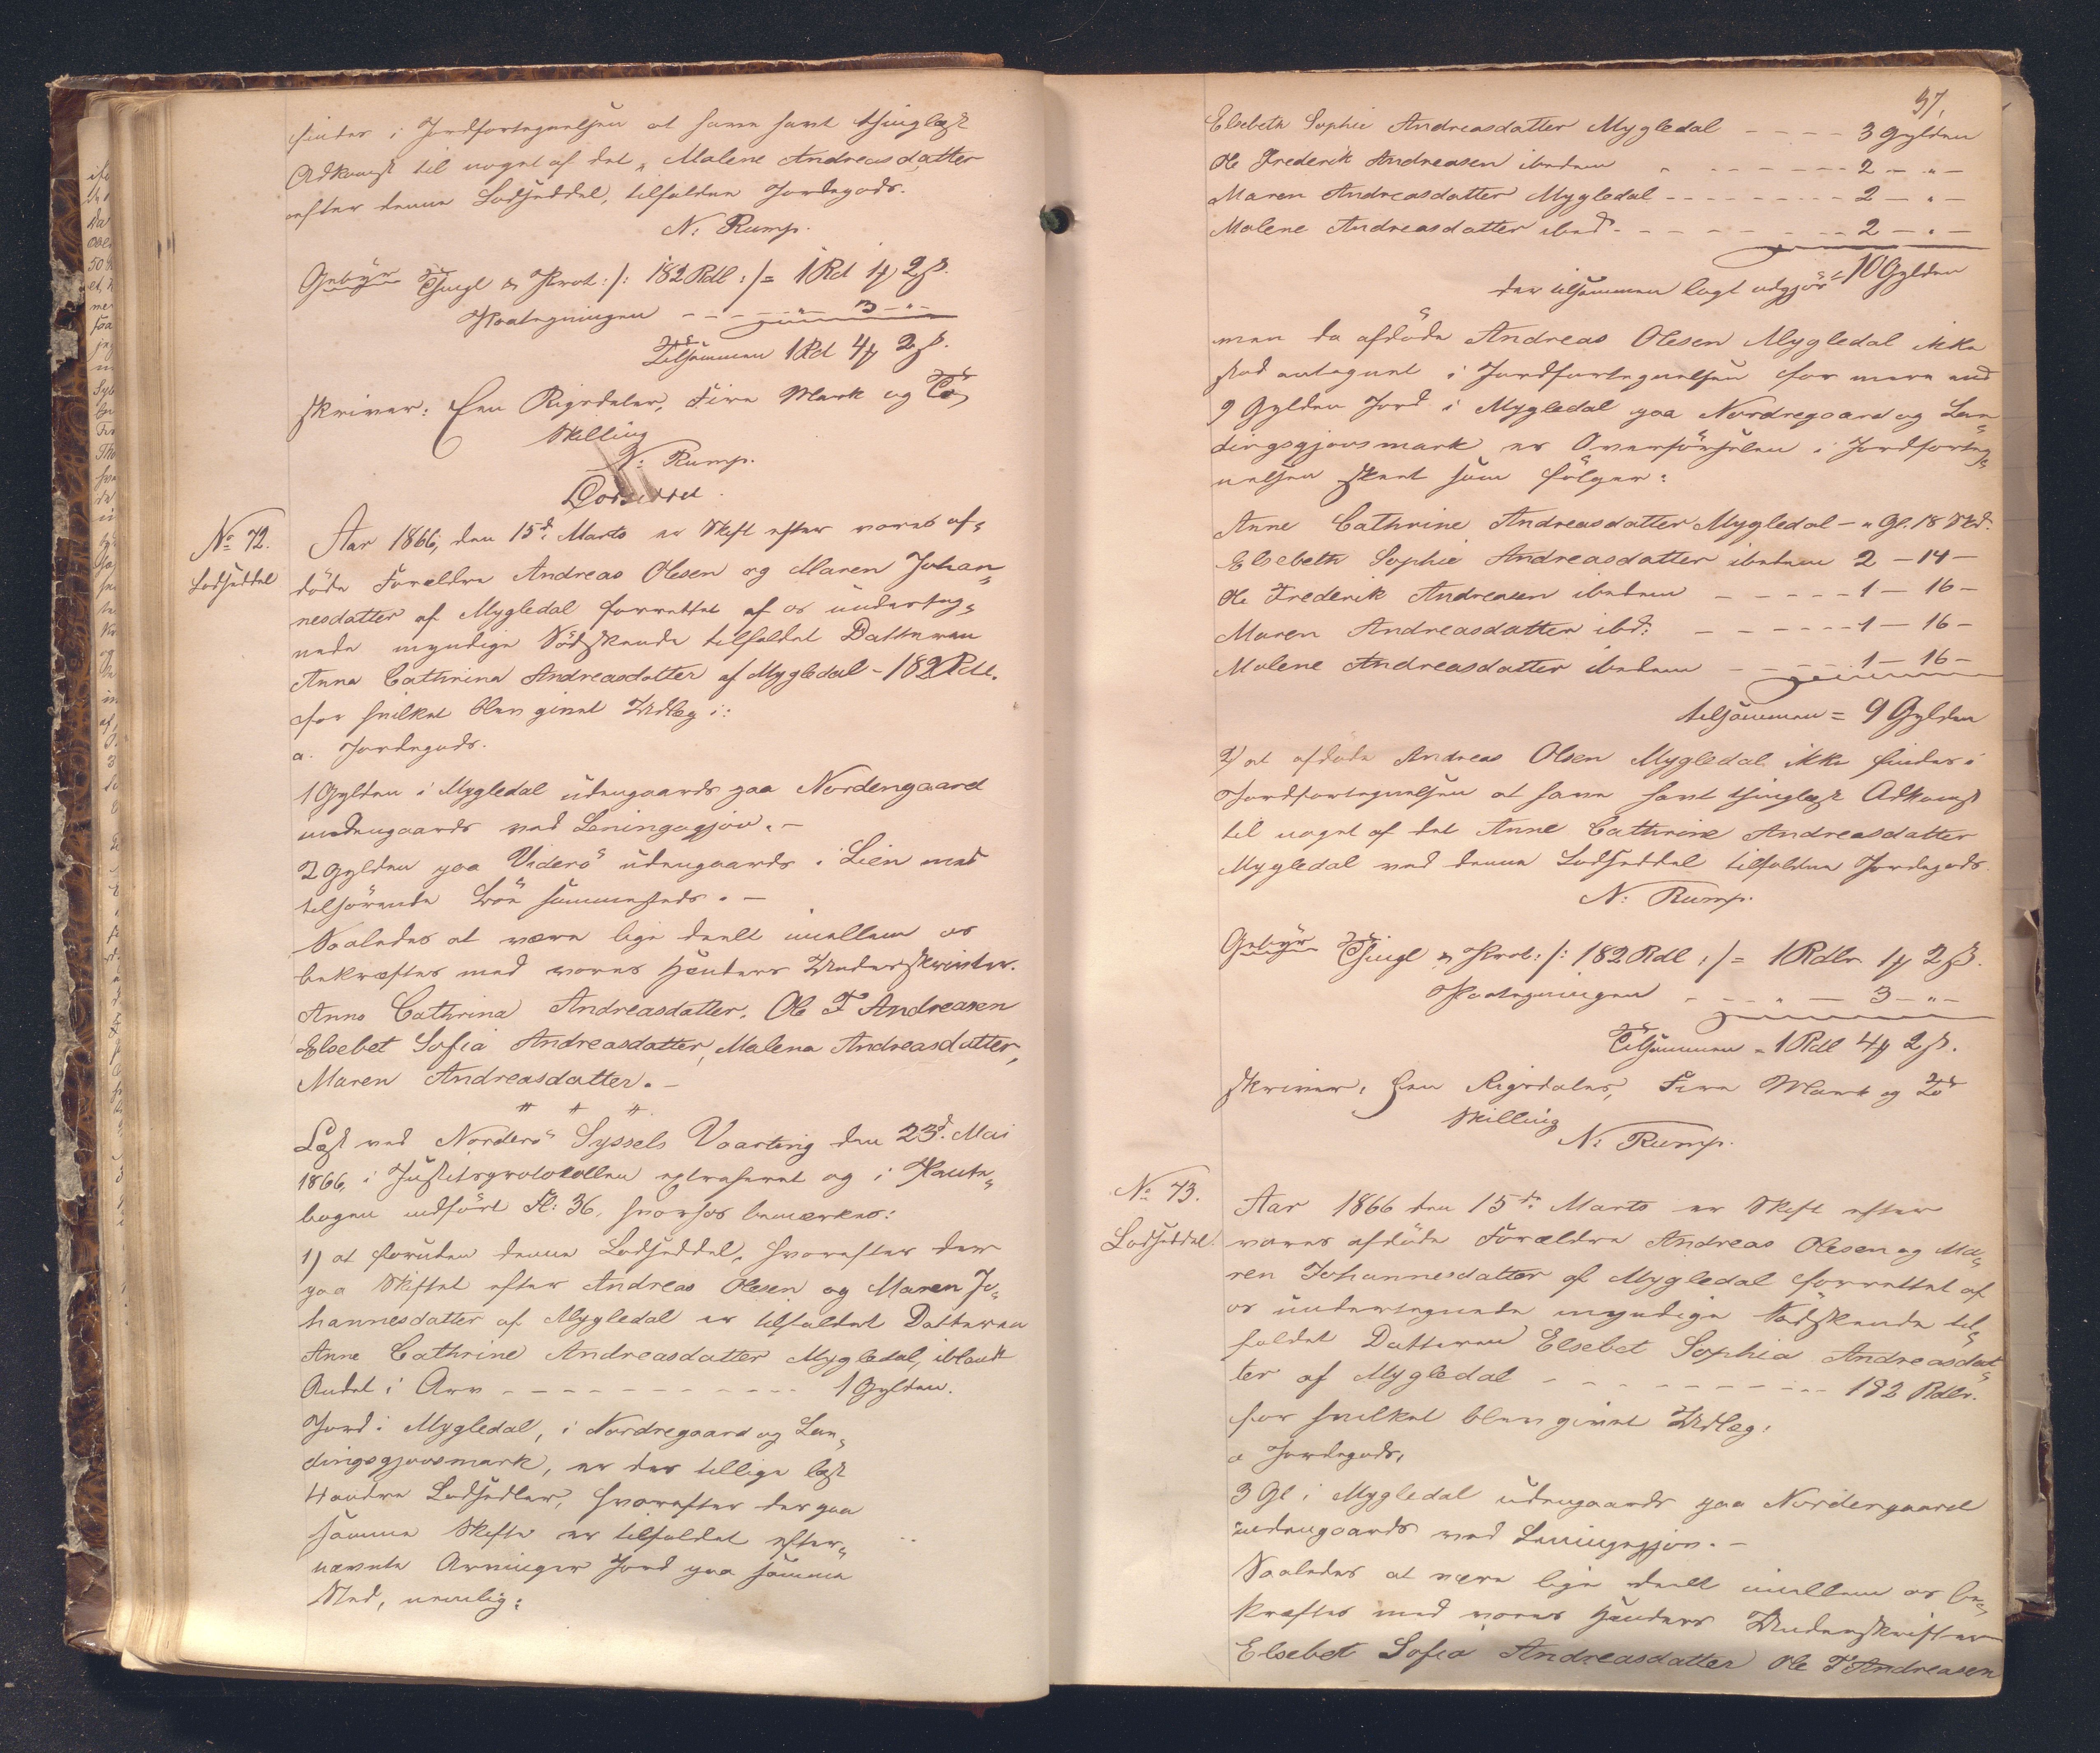 findes i Jordfortegnelsen at have havt thinglæst
Adkomst til noget af det, Malene Andreasdatter
efter denne Lodseddel, tilfaldne Jordegods.
N: Rump.
Gebyr Thingl & Prot: /: 182 Rdl :/ = 1 Rd 1 ꝳ 2 ß.
Paategningen - - - „ - 3 - „ -
Tilsammen 1 Rd 4 ꝳ 2 ß.
skriver: Een Rigsdaler, Fire Mark og To
Skilling
N: Rump.
Lodseddel.
No 72.
Lodseddel
Aar 1866, den 15d: Marts er Skift efter vores af-
döde Forældre Andreas Olesen og Maren Johan-
nesdatter af Mygledal forrettet af os underteg-
nede myndige Södskende tilfaldet Datteren
Anna Cathrina Andreasdatter af Mygledal - 182 Rdl.
for hvilket blev givet Udlæg i:
a. Jordegods.
1 Gylden i Mygledal udengaards paa Nordengaard
indengaards ved Leningsgjov. -
2 Gylden paa Viderö udengaards i Lien med
tilhörende Böe sammesteds. -
Saaledes at være lige deelt imellem os
bekræftes med vores Hænders Underskrivter.
Anna Cathrina Andreasdatter. Ole F Andreasen
Elsebet Sofia Andreasdatter, Malena Andreasdatter,
Maren Andreasdatter. -
Læst ved Norderö Syssels Vaarting den 23d. Mai
1866, i Justitsprotokollen extraheret og i Pante-
bogen indfört Fl: 36, hvorhos bemærkes:
1) at foruden denne Lodseddel, hvorefter der
paa Skiftet efter Andreas Olesen og Maren Jo-
hannesdatter af Mygledal er tilfaldet Datteren
Anne Cathrine Andreasdatter Mygledal, iblandt
Andet i Arv - - - - - - - - - - - - 1 Gylden.
Jord i Mygledal, i Nordregaard og Len-
dingsgjovsmark, er der tillige læst
4 andre Lodsedler, hvorefter der paa
samme Skifte er tilfaldet efter-
nævnte Arvinger Jord paa samme
Sted, nemlig:
37.
Elsebeth Sophie Andreasdatter Mygledal - - - - 3 Gylden
Ole Frederik Andreasen ibedem - - - - - - - 2 - „ -
Maren Andreasdatter Mygledal - - - - - - - - 2 - „ -
Malene Andreasdatter ibed - - - - - - - - 2 - „ -
der tilsammen lagt udgjör = 10 Gylden
men da afdöde Andreas Olesen Mygledal ikke
stod antegnet i Jordfortegnelsen for mere end
9 Gylden Jord i Mygledal paa Nordregaard og Len-
dingsgjovsmark er Overförselen i Jordforteg-
nelsen skeet som fölger:
Anne Cathrine Andreasdatter Mygledal - „ Gl. 18 Skd.
Elsebeth Sophie Andreasdatter ibedem 2 - 14 -
Ole Frederik Andreasen ibedem - - - - - 1 - 16 -
Maren Andreasdatter ibd: - - - - - - 1 - 16 -
Malene Andreasdatter ibedem - - - - - 1 - 16 -
tilsammen = 9 Gylden
2) at afdöde Andreas Olsen Mygledal ikke findes i
Jordfortegnelsen at have havt thinglæst Adkomst
til noget af det Anne Cathrine Andreasdatter
Mygledal ved denne Lodseddel tilfaldne Jordegods.
N: Rump.
Gebyr Thingl & Prot: /: 182 Rdl :/ = 1 Rdlr 1 ꝳ 2 ß.
Paategningen - - - „ - 3 - „ -
Tilsammen = 1 Rdl 4 ꝳ 2 ß.
skriver: Een Rigsdaler, Fire Mark og To
Skilling
N: Rump.
No 73.
Lodseddel.
Aar 1866 den 15de: Marts er Skift efter
vores afdöde Forældre Andreas Olesen og Ma-
ren Johannesdatter af Mygledal forrettet af
os undertegnede myndige Södskende til-
faldet Datteren Elsebet Sophia Andreasdat-
ter af Mygledal - - - - - - - - - - - 182 Rdlr.
for hvilket blev givet Udlæg:
a Jordegods,
3 Gl i Mygledal udengaards paa Nordergaard
indengaards ved Leningsgjov. -
Saaledes at være lige deelt imellem os be-
kræftes med vores Hænders Underskrifter
Elsebet Sofia Andreasdatter Ole F Andreasen